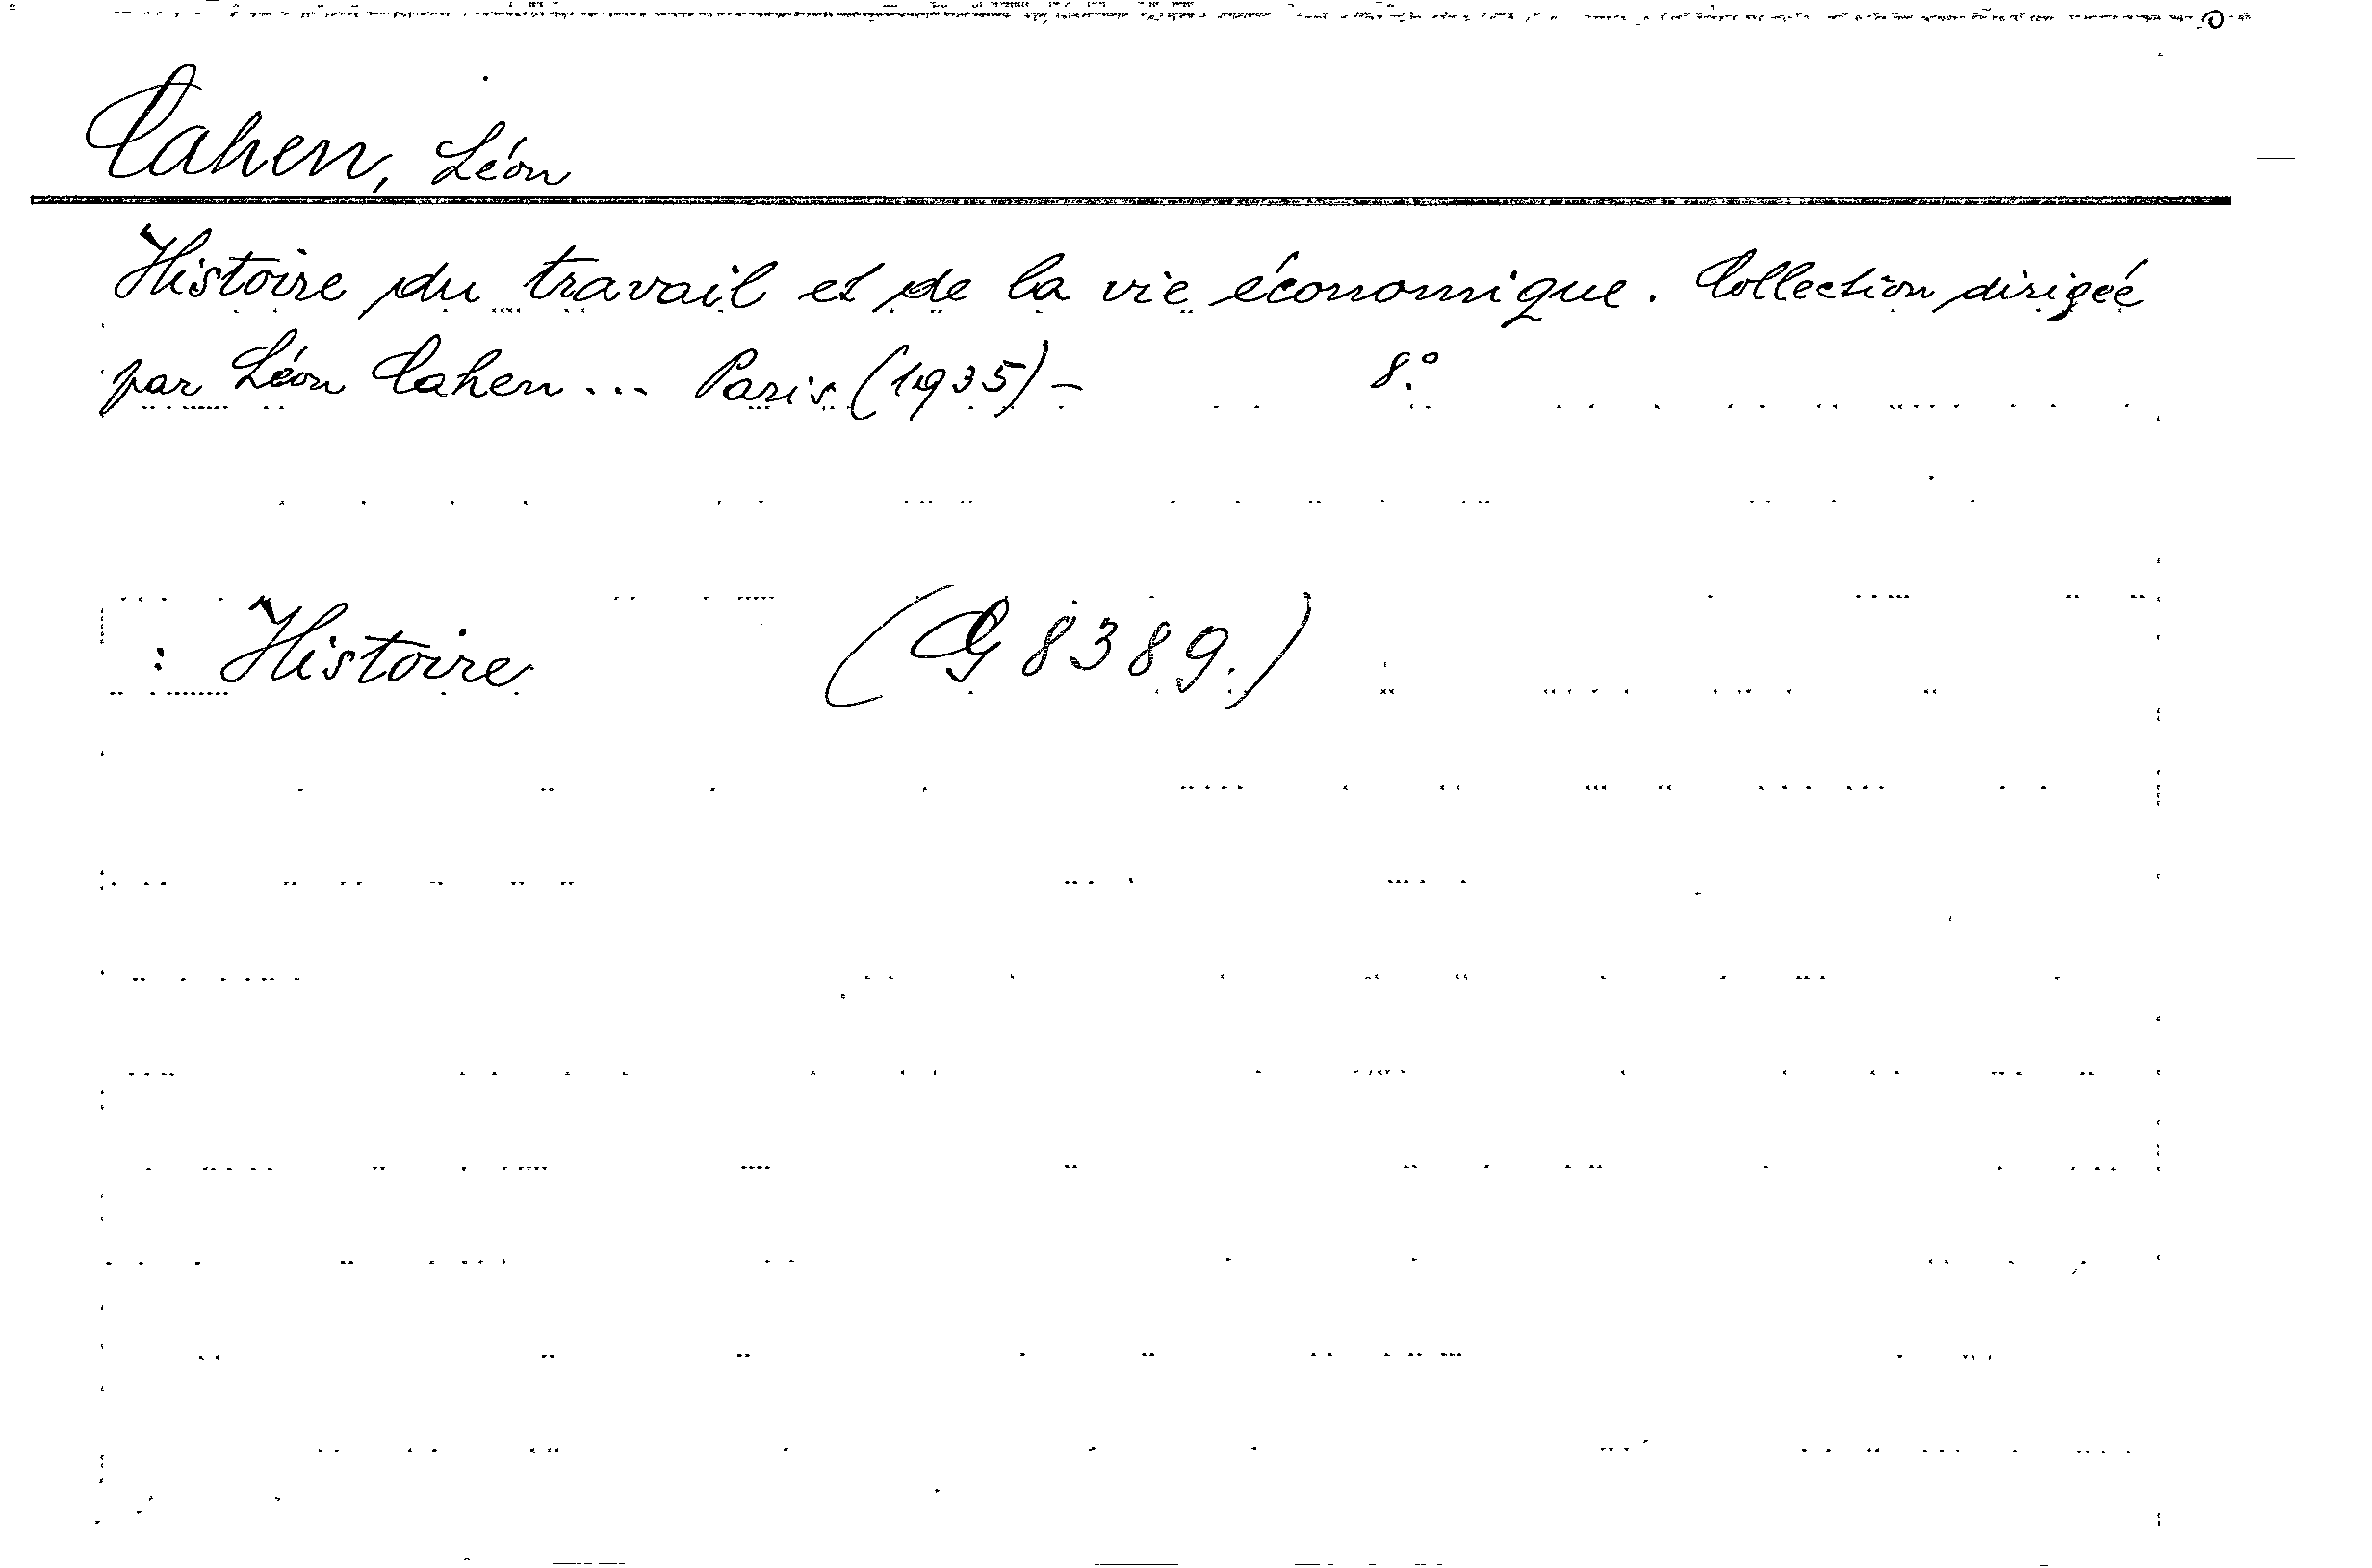 Cahen, Léon
Histoire du travail et de la vie économique. Collection dirigée
par Léon Cahen... Paris (1935) - 8:o
: Histoire (G 8389.)